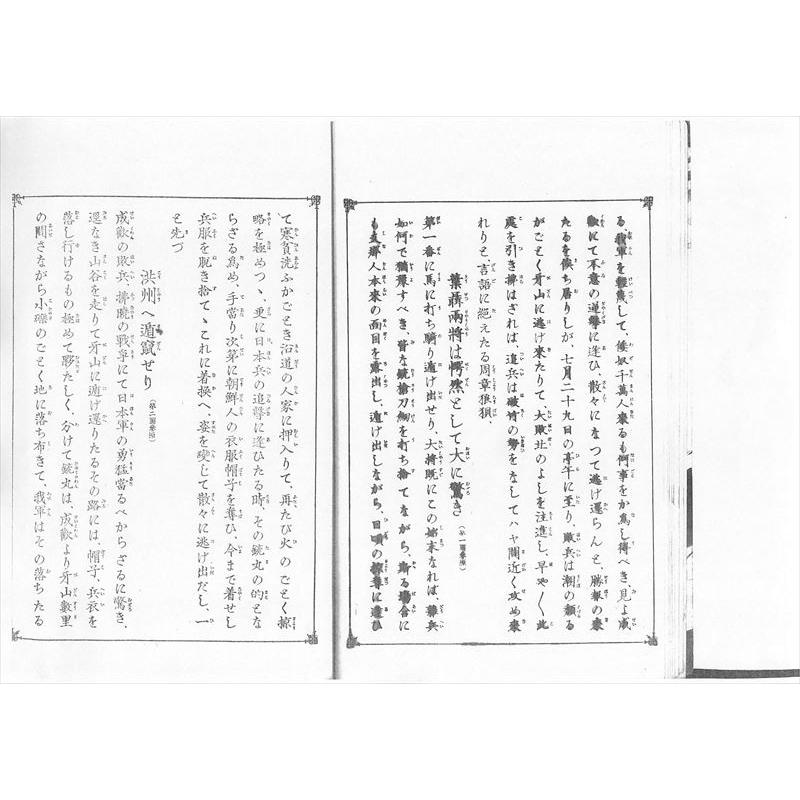 る、我軍を輕蔑して、倭奴千萬人來るも何事をか爲し得べき、見よ成
歡にて不意の逆擊に逢ひ、散々になつて逃げ還らんと、勝報の來
たるを俟ち居りしが、七月二十九日の亭午に至り、敗兵は潮の頽る
がごとく牙山に逃げ來たりて、大敗北のよしを注進し、早や〱此
處を引き拂はざれば、追兵は破竹の勢をなしてハヤ間近く攻め來
れりと、言語に絕えたる周章狼狽、
葉聶兩將は愕然として大に驚き（第一圖參照）
第一番に馬に打ち騎り遁げ出せり、大將既にこの始末なれば、雜兵
如何で猶豫すべき、皆な銃槍刀劍を打ち捨てながら、斯る場合に
も支那人本來の面目を露出し、遁げ出しながら、日頃の
て寒貧洗ふがごとき沿道の人家に押入りて、再たび火のごとく掠
略を極めつゝ、更に日本兵の追擊に逢ひたる時、その銃丸の的とな
らざる爲め、手當り次第に朝鮮人の衣服帽子を奪ひ、今まで着せし
兵服を脫ぎ捨てゝこれに着換へ、姿を變じて散々に逃げ出だし、一
と先づ
洪州へ遁竄せり（第二圖參照）
成歡の敗兵、拂曉の戰爭にて日本軍の勇猛當るべからざるに驚き、
遑なき山谷を走りて牙山に遁げ還りたるその路には、帽子、兵衣を
落し行けるもの極めて夥たしく、分けて銃丸は、成歡より牙山數里
の間さながら小礫のごとく地に落ち布きて、我軍はその落ちたる